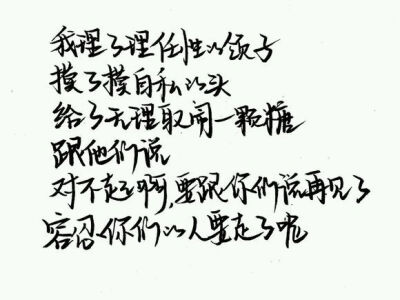 我理了理任性的领子
摸了摸自私的头
给了无理取闹一颗糖
跟他们说
对不起啊,要跟你们说再见了
容忍你们的人要走了呢